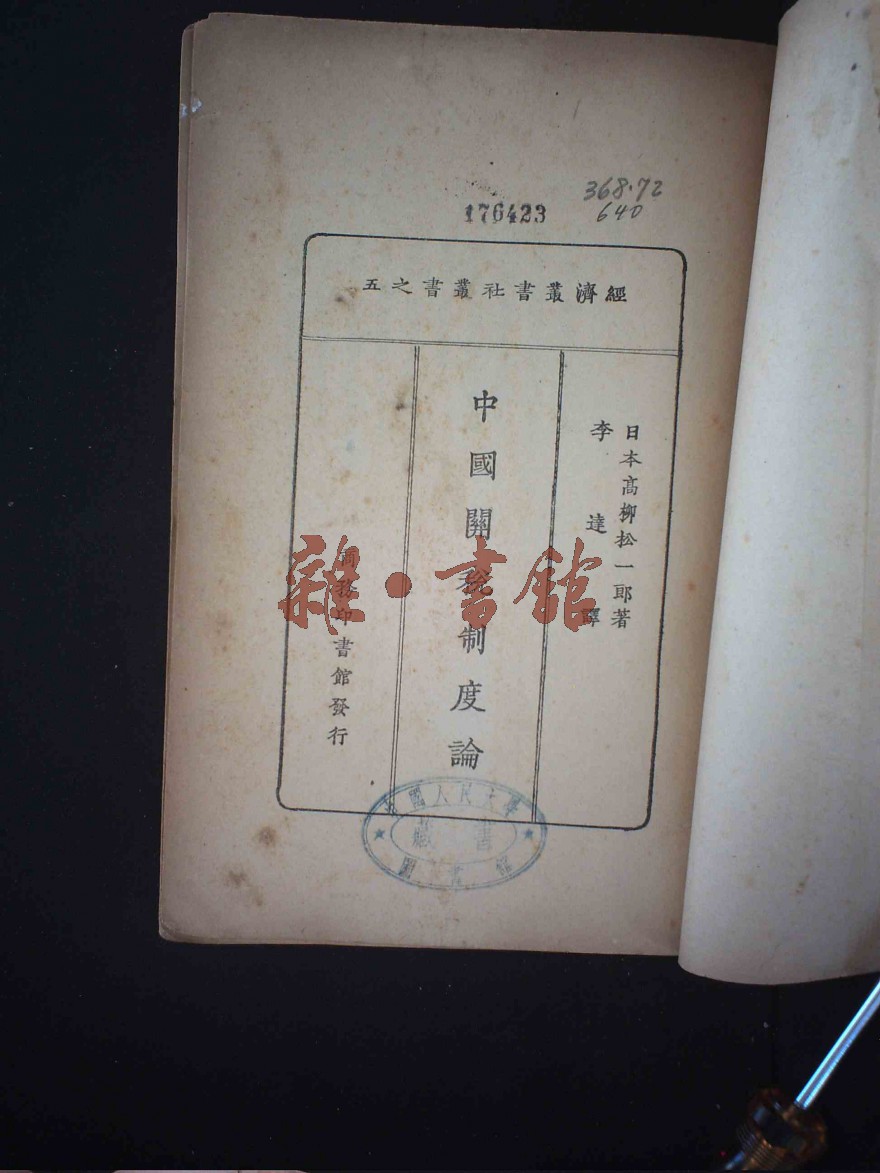 368.72
640
176423
經濟叢書社叢書之五
日本高柳松一郎著
李達譯
中國關稅制度論
商務印書館發行
雜·書館
中國人民大學
藏書
圖書館